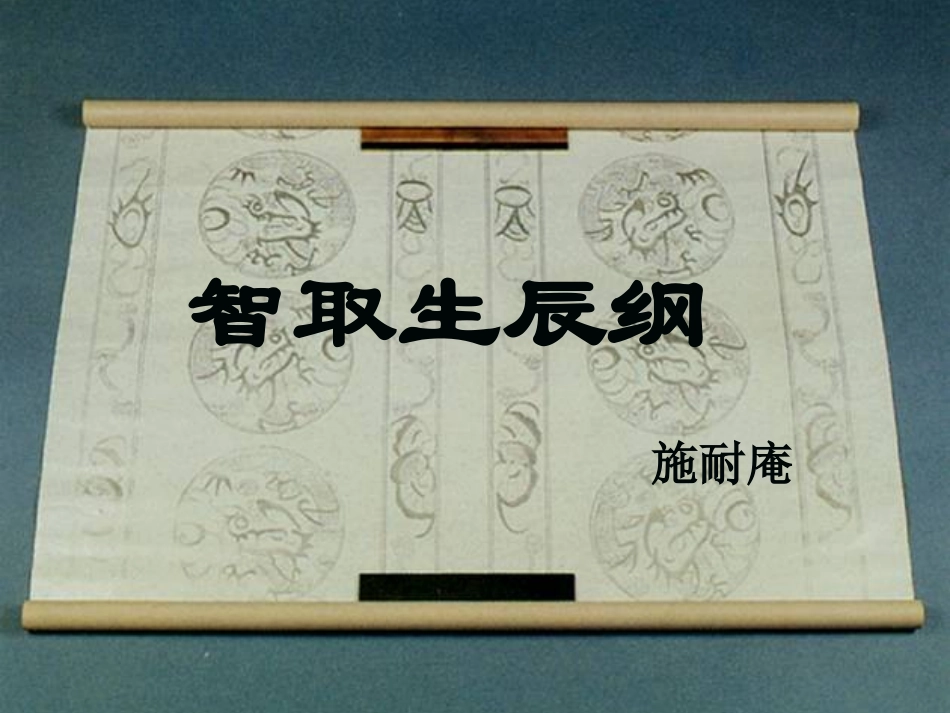 智取生辰纲
施耐庵